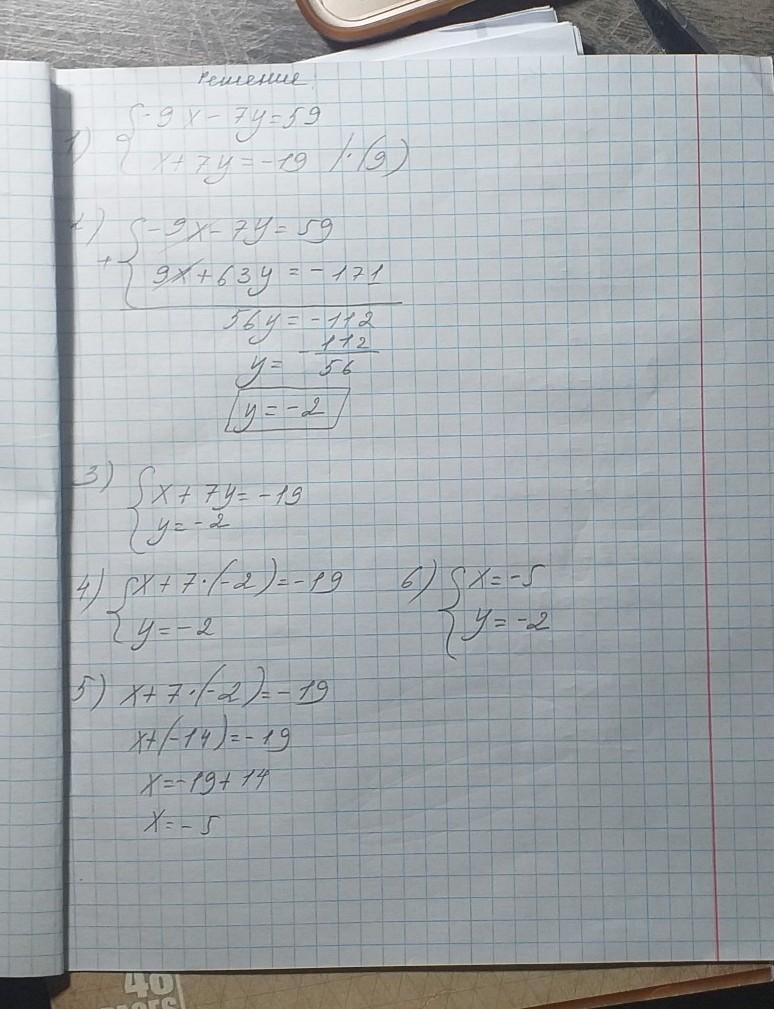 Решение
1) { -9x - 7y = 59
x + 7y = -19 | · (9)
2) { -9x - 7y = 59
+ 9x + 63y = -171
56y = -112
y = - 112/56
y = -2
3) { x + 7y = -19
y = -2
4) { x + 7 · (-2) = -19
y = -2
5) x + 7 · (-2) = -19
x + (-14) = -19
x = -19 + 14
x = -5
6) { x = -5
y = -2
48
PAGES